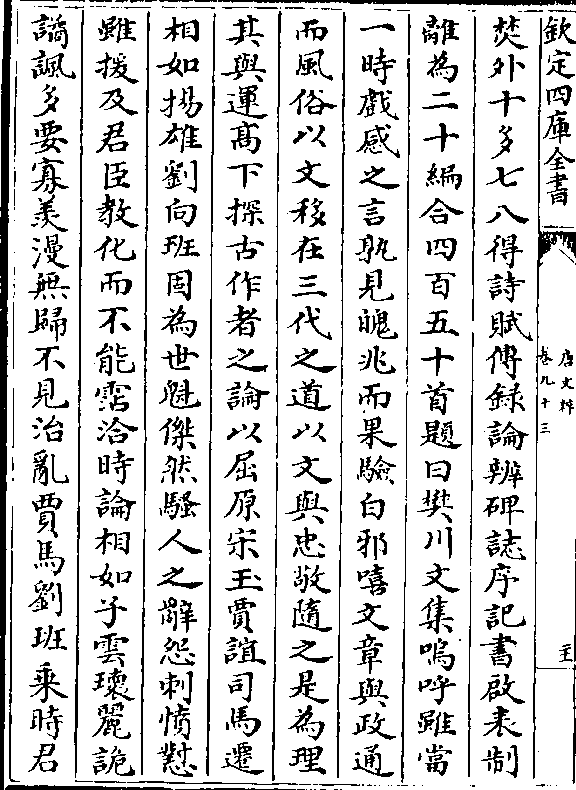 欽定四庫全書
唐文粹
卷九十三
焚外十多七八得詩賦傳録論辨碑誌序記書啟表制
離為二十編合四百五十首題曰樊川文集嗚呼雖當
一時戲感之言孰見魄兆而果驗白邪嘻文章與政通
而風俗以文移在三代之道以文與忠敬隨之是為理
其與運髙下探古作者之論以屈原宋玉賈誼司馬遷
相如揚雄劉向班固為世魁傑然騷人之辭怨刺憤懟
雖援及君臣教化而不能霑洽時論相如子雲瓌麗詭
譎諷多要寡羨漫無歸不見治亂賈馬劉班乗時君